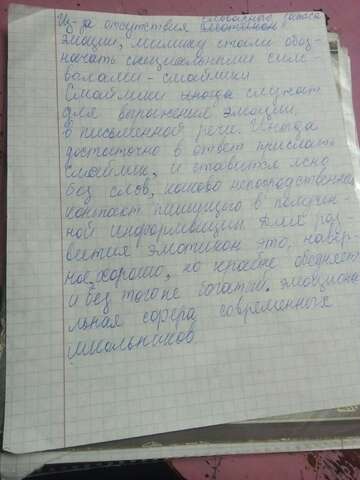 Из-за отсутствия словарного запаса
эмоции, мимику стали обоз-
начать специальными сим-
волами - смайлики
Смайлики иногда служат
для выражения эмоции,
в письменной речи. Иногда
достаточно в ответ прислать
смайлик, и ставится ясно
без слов, каково непосредственн
контакт пишущего в получен-
ной информации. Для раз-
вития эмотикон это, навер-
ное, хорошо, но крайне обедняет
и без того не богатую эмоциона
льная сфера современных
школьников